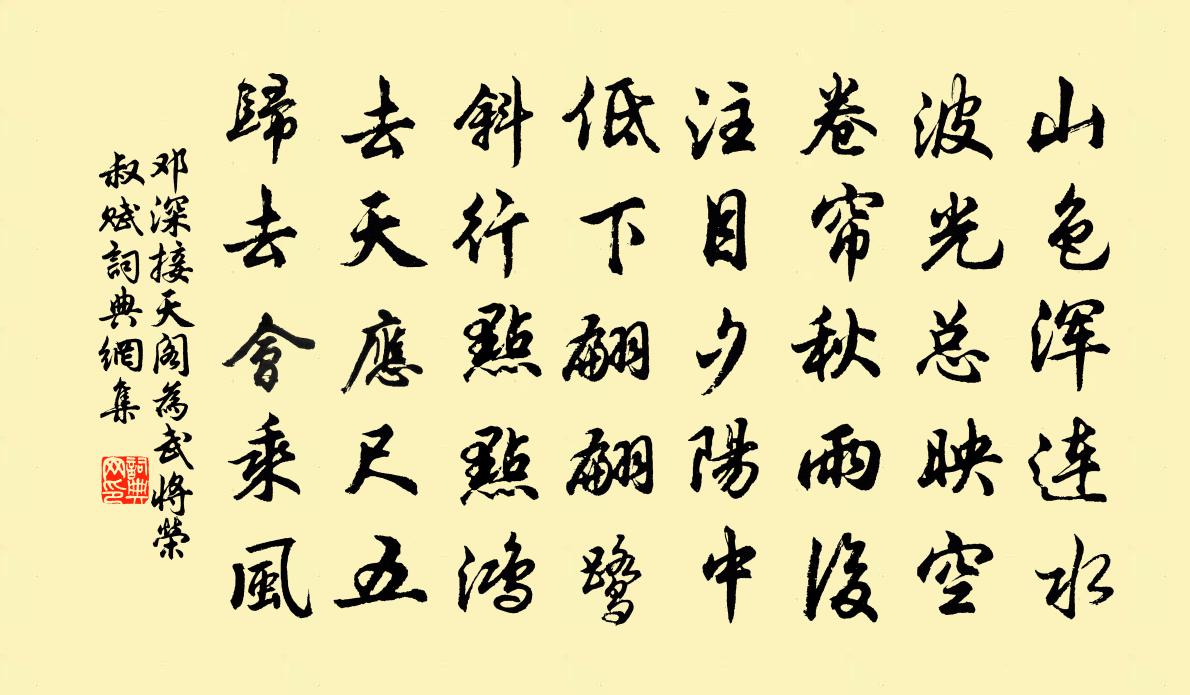 山色浑連水
波光总映空
卷帘秋雨後
注目夕陽中
低下翩翩鹭
斜行點點鸿
去天應尺五
歸去會乘風
邓深接天阁為武將榮
叔赋詞典網集
詞典网印